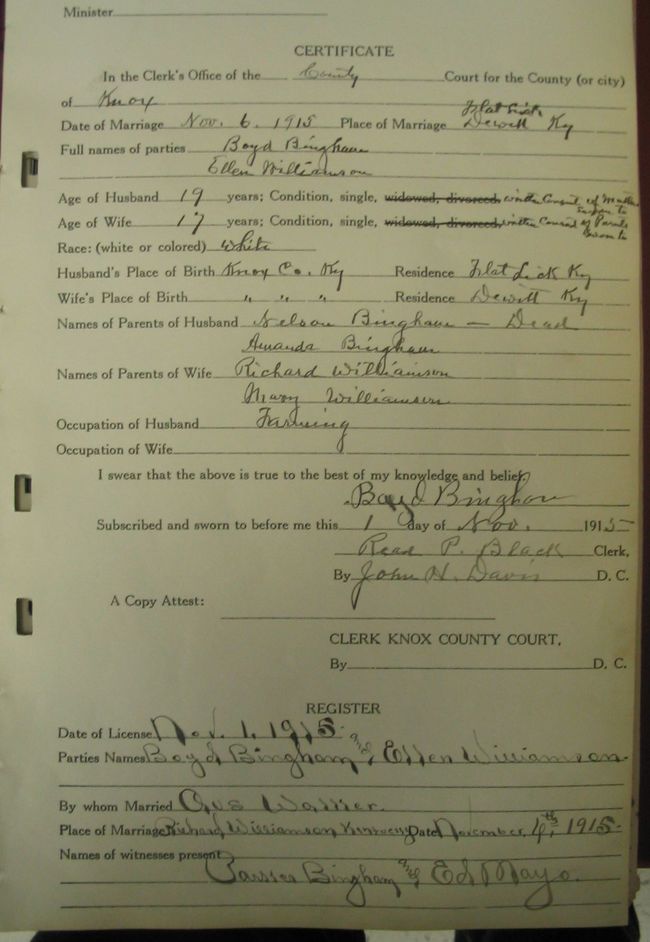 Minister
CERTIFICATE
In the Clerk's Office of the County Court for the County (or city)
of Knox
Flat Lick
Date of Marriage Nov. 6. 1915 Place of Marriage Dewitt Ky
Full names of parties Boyd Bingham
Ellen Williamson
Age of Husband 19 years; Condition, single, widowed, divorced, written Consent of Mother
Sworn to
Age of Wife 17 years; Condition, single, widowed, divorced, written Consent of Parents
Sworn to
Race: (white or colored) White
Husband's Place of Birth Knox Co. Ky Residence Flat Lick Ky
Wife's Place of Birth " " " Residence Dewitt Ky
Names of Parents of Husband Nelson Bingham – Dead
Amanda Bingham
Names of Parents of Wife Richard Williamson
Mary Williamson
Occupation of Husband Farming
Occupation of Wife
I swear that the above is true to the best of my knowledge and belief.
Boyd Bingham
Subscribed and sworn to before me this 1 day of Nov. 1915
Read P. Black Clerk,
By John H. Davis D. C.
A Copy Attest:
CLERK KNOX COUNTY COURT.
By D. C.
REGISTER
Date of License Nov. 1, 1915
Parties Names Boyd Bingham and Ellen Williamson
By whom Married Gus
Place of Marriage Richard Williamson Date November, 4th, 1915
Names of witnesses present
Bingham and Ed Mayo.